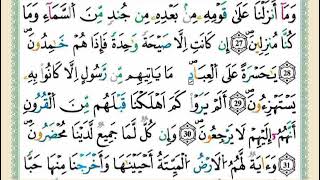 وَمَآ اَنْزَلْنَا عَلٰى قَوْمِهٖ مِنْۢ بَعْدِهٖ مِنْ جُنْدٍ مِّنَ السَّمَآءِ وَمَا
كُنَّا مُنْزِلِيْنَ ﴿27﴾ اِنْ كَانَتْ اِلَّا صَيْحَةً وَّاحِدَةً فَاِذَا هُمْ خٰمِدُوْنَ
﴿28﴾ يٰحَسْرَةً عَلَى الْعِبَادِ مَا يَاْتِيْهِمْ مِّنْ رَّسُوْلٍ اِلَّا كَانُوْا بِهٖ
يَسْتَهْزِءُوْنَ ﴿29﴾ اَلَمْ يَرَوْا كَمْ اَهْلَكْنَا قَبْلَهُمْ مِّنَ الْقُرُوْنِ
اَنَّهُمْ اِلَيْهِمْ لَا يَرْجِعُوْنَ ﴿30﴾ وَاِنْ كُلٌّ لَّمَّا جَمِيْعٌ لَّدَيْنَا مُحْضَرُوْنَ
﴿31﴾ وَاٰيَةٌ لَّهُمُ الْاَرْضُ الْمَيْتَةُ اَحْيَيْنٰهَا وَاَخْرَجْنَا مِنْهَا حَبًّا